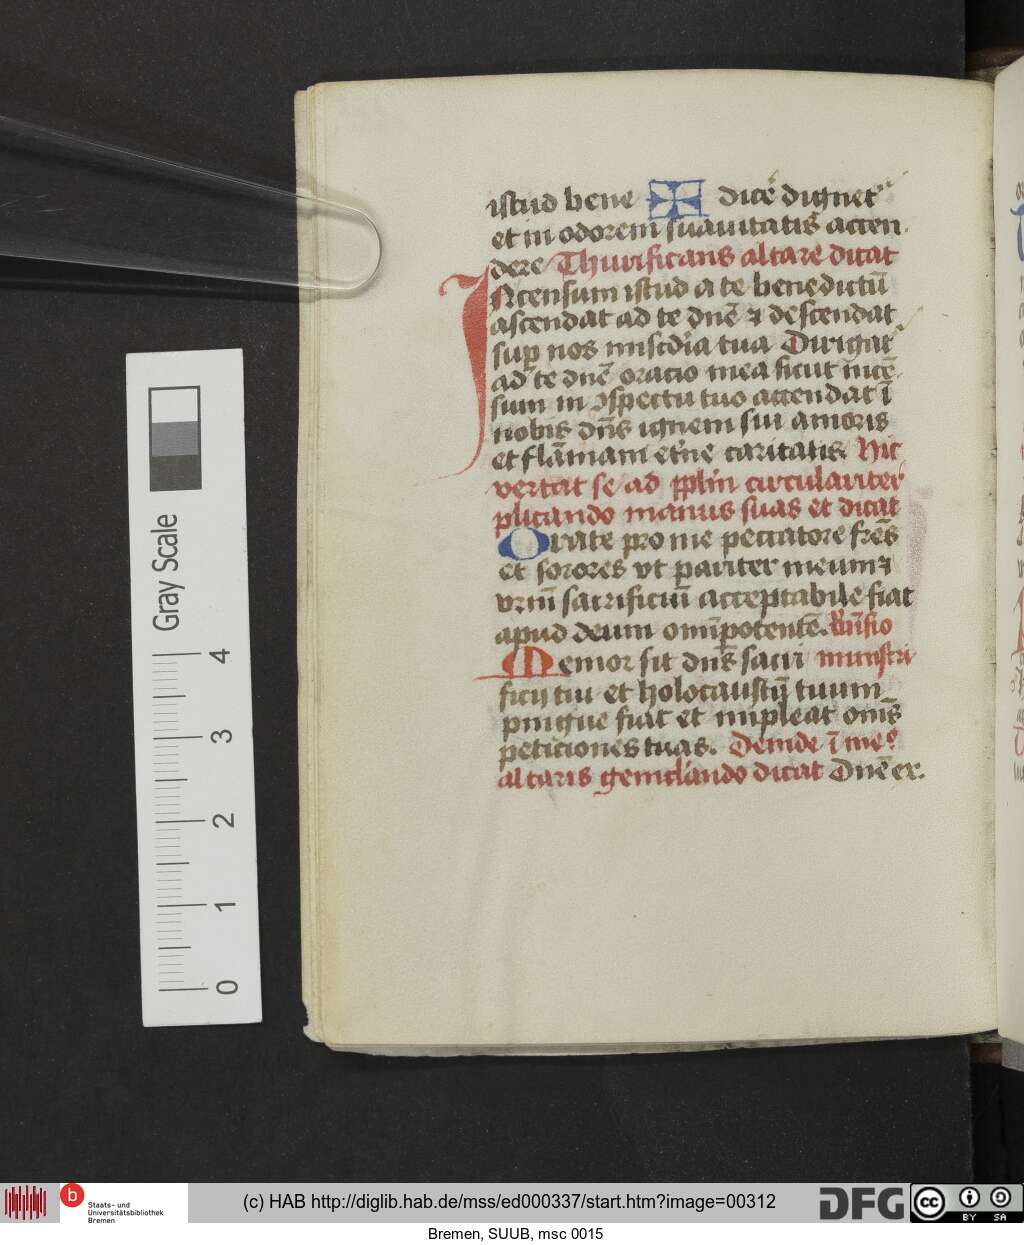 istud bene ✠ dicē dignet᷑
et in odorem suauitatis accen
dere Thurificans altare dicat
INcensum istud a te benedictū
ascendat ad te dnē ⁊ descendat
sup nos miscdia tua Dirigat᷑
ad te dnē oracio mea sicut incē
sum in ꝯspectu tuo accendat ī
nobis dns ignem sui amoris
et flāmam etne caritatis. Hic
vertat se ad pplm circulariter
plicando manus suas et dicat
Orate pro me peccatore frēs
et sorores vt pariter meum ⁊
vrm̄ sacrificiū acceptabile fiat
apud deum omīpotentē. Rūsio
Memor sit dns sacri ministri
ficij tui et holocaustū tuum
pingue fiat et impleat omīs
peticiones tuas. Deinde ī meꝰ
altaris genuclando dicat Dnē ex.
Gray Scale
4
3
2
1
0
b
Staats- und
Universitätsbibliothek
Bremen
(c) HAB http://diglib.hab.de/mss/ed000337/start.htm?image=00312
DFG
cc
BY SA
Bremen, SUUB, msc 0015